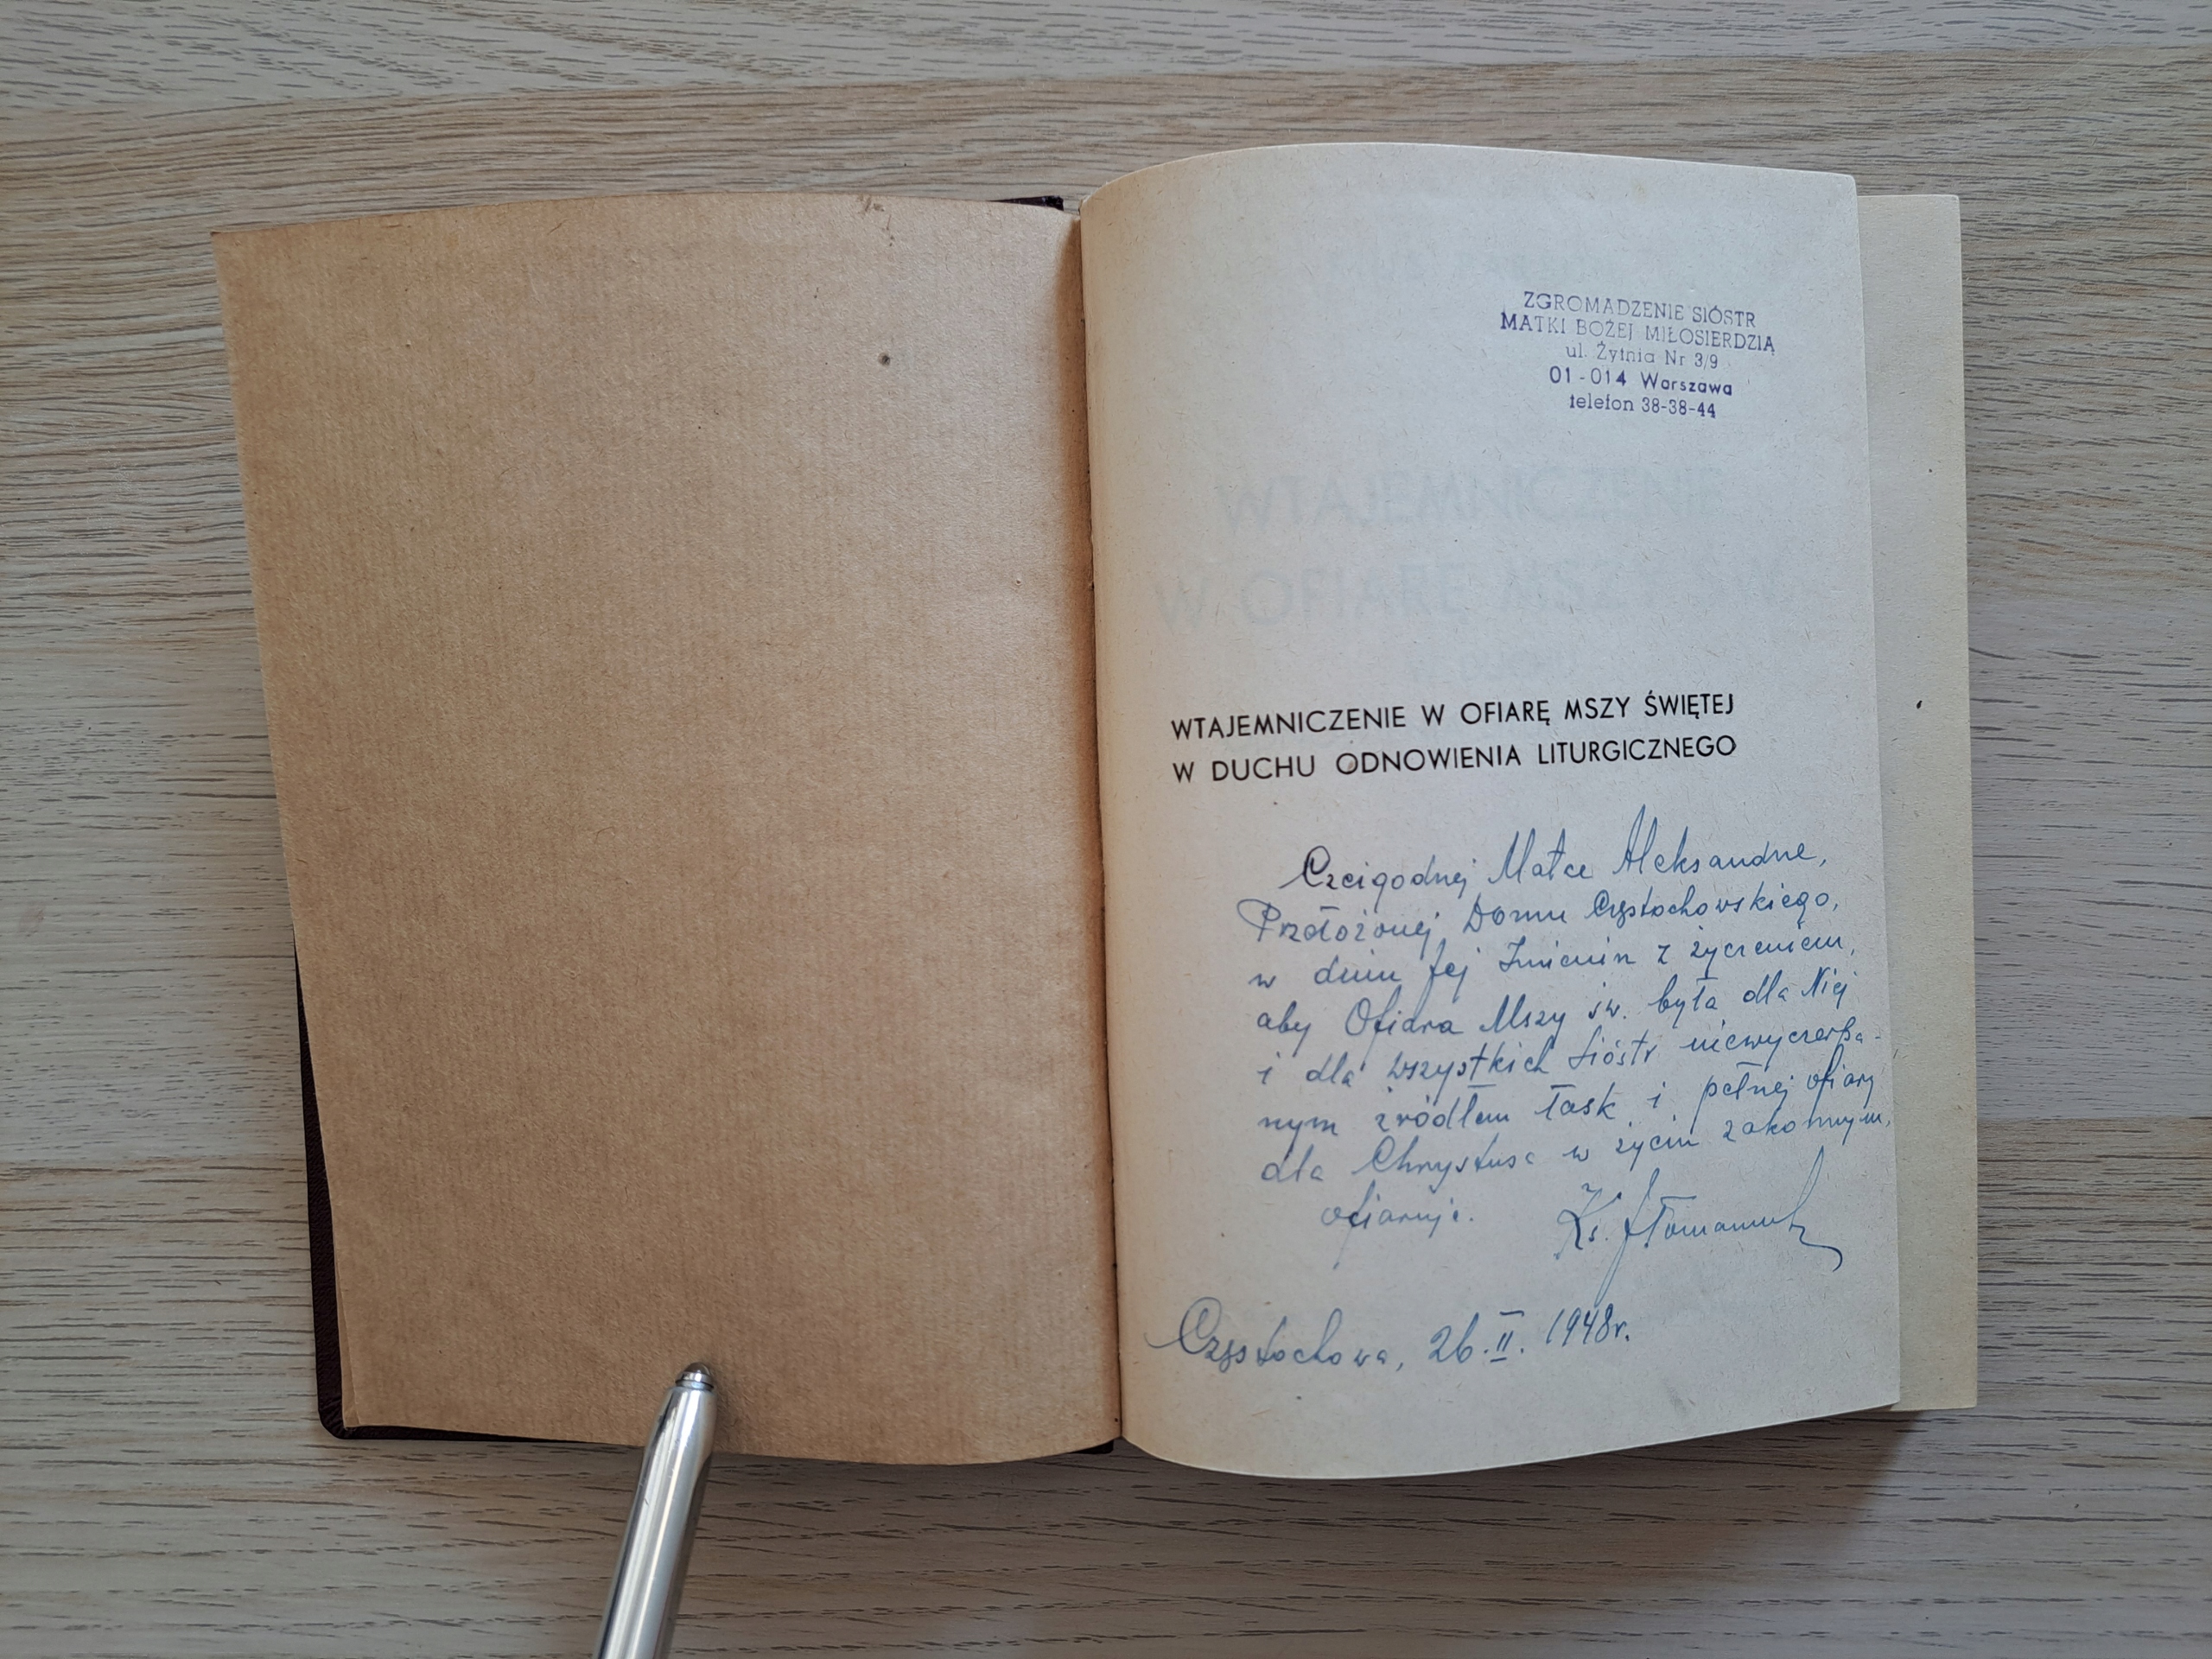 ZGROMADZENIE SIÓSTR
MATKI BOŻEJ MIŁOSIERDZIA
ul. Żytnia Nr 3/9
01-014 Warszawa
telefon 38-38-44
WTAJEMNICZENIE
W OFIARĘ MSZY ŚW
WTAJEMNICZENIE W OFIARĘ MSZY ŚWIĘTEJ
W DUCHU ODNOWIENIA LITURGICZNEGO
Czcigodnej Matce Aleksandrze,
Przełożonej Domu Częstochowskiego,
w dniu Jej Imienin z życzeniem,
aby Ofiara Mszy św. była dla Niej
i dla wszystkich Sióstr niewyczerpa-
nym źródłem łask i pełnej ofiary
dla Chrystusa w życiu zakonnym,
ofiaruje.
Ks.
Częstochowa, 26.II.1948r.